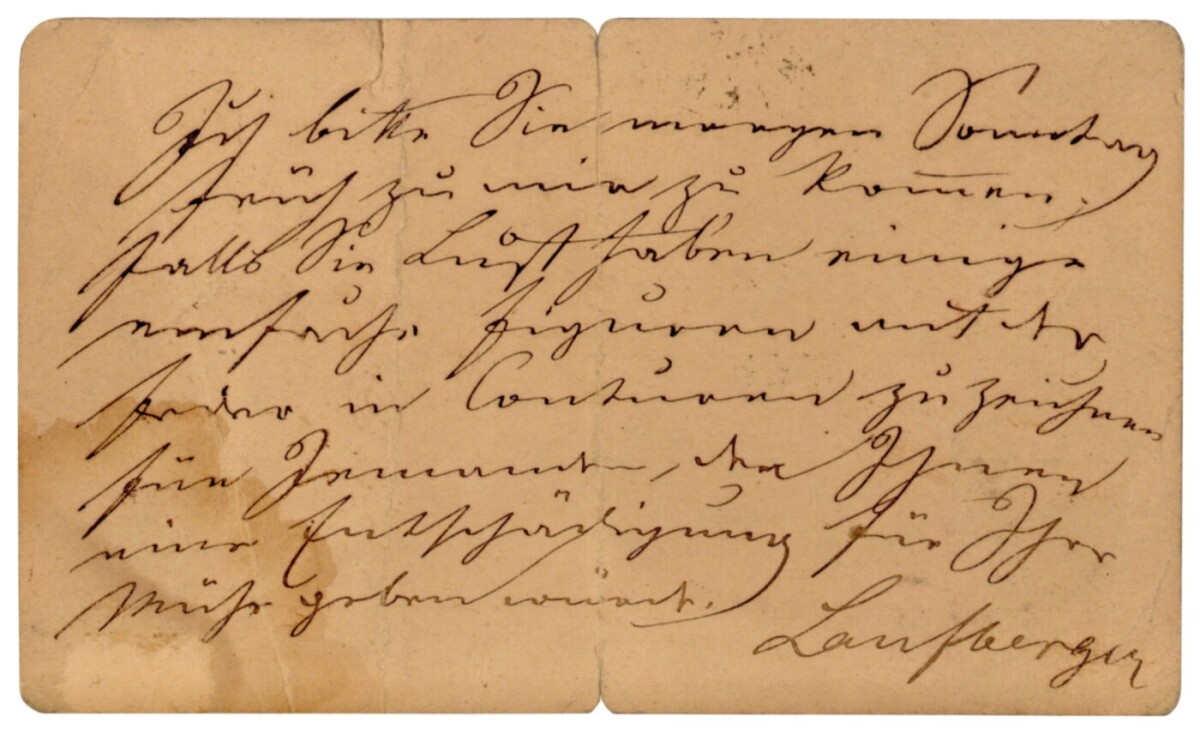 Ich bitte Sie morgen Sonntag
früh zu mir zu kom̄en.
falls Sie Lust haben einige
einfache Figuren mit der
Feder in Conturen zu zeichnen
für Jemanden, der Ihnen
eine Entschädigung für Ihre
Mühe geben würde.
Laufberger